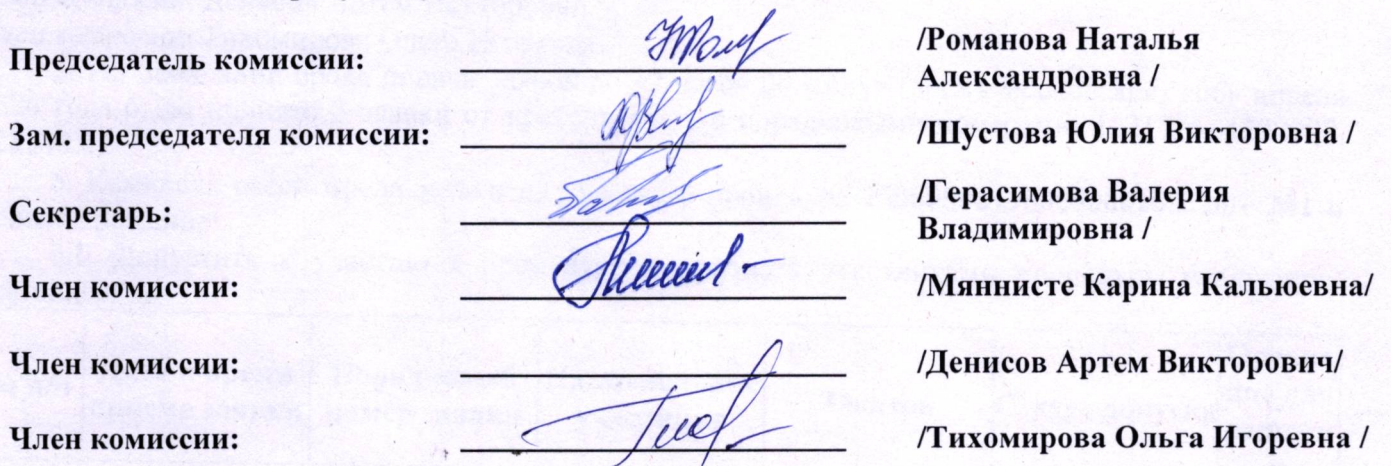 Председатель комиссии: /Романова Наталья
Александровна /
Зам. председателя комиссии: /Шустова Юлия Викторовна /
Секретарь: /Герасимова Валерия
Владимировна /
Член комиссии: /Мяннисте Карина Кальюевна/
Член комиссии: /Денисов Артем Викторович/
Член комиссии: /Тихомирова Ольга Игоревна /